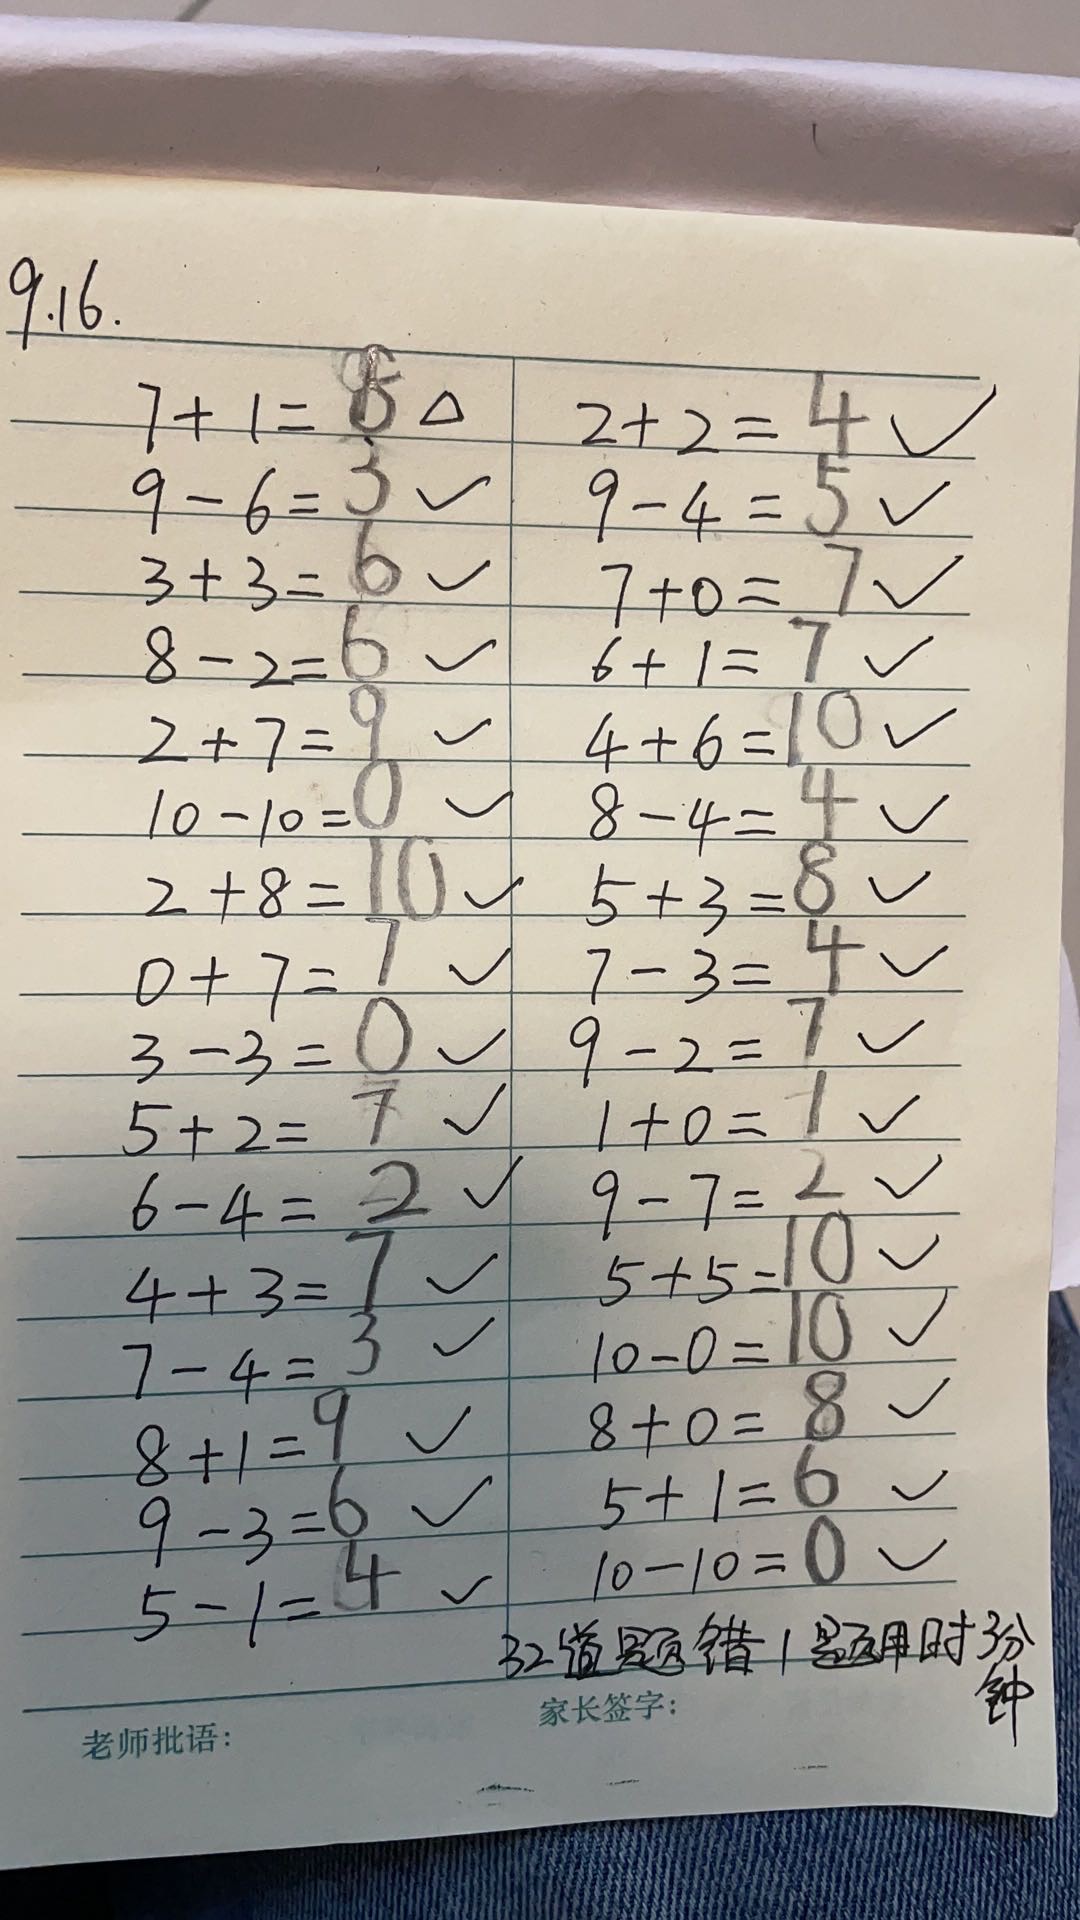 9.16.
7+1=8 △
9-6=3 ✓
3+3=6 ✓
8-2=6 ✓
2+7=9 ✓
10-10=0 ✓
2+8=10 ✓
0+7=7 ✓
3-3=0 ✓
5+2=7 ✓
6-4=2 ✓
4+3=7 ✓
7-4=3 ✓
8+1=9 ✓
9-3=6 ✓
5-1=4 ✓
2+2=4 ✓
9-4=5 ✓
7+0=7 ✓
6+1=7 ✓
4+6=10 ✓
8-4=4 ✓
5+3=8 ✓
7-3=4 ✓
9-2=7 ✓
1+0=1 ✓
9-7=2 ✓
5+5=10 ✓
10-0=10 ✓
8+0=8 ✓
5+1=6 ✓
10-10=0 ✓
32道题错1题用时3分
钟
老师批语：
家长签字：